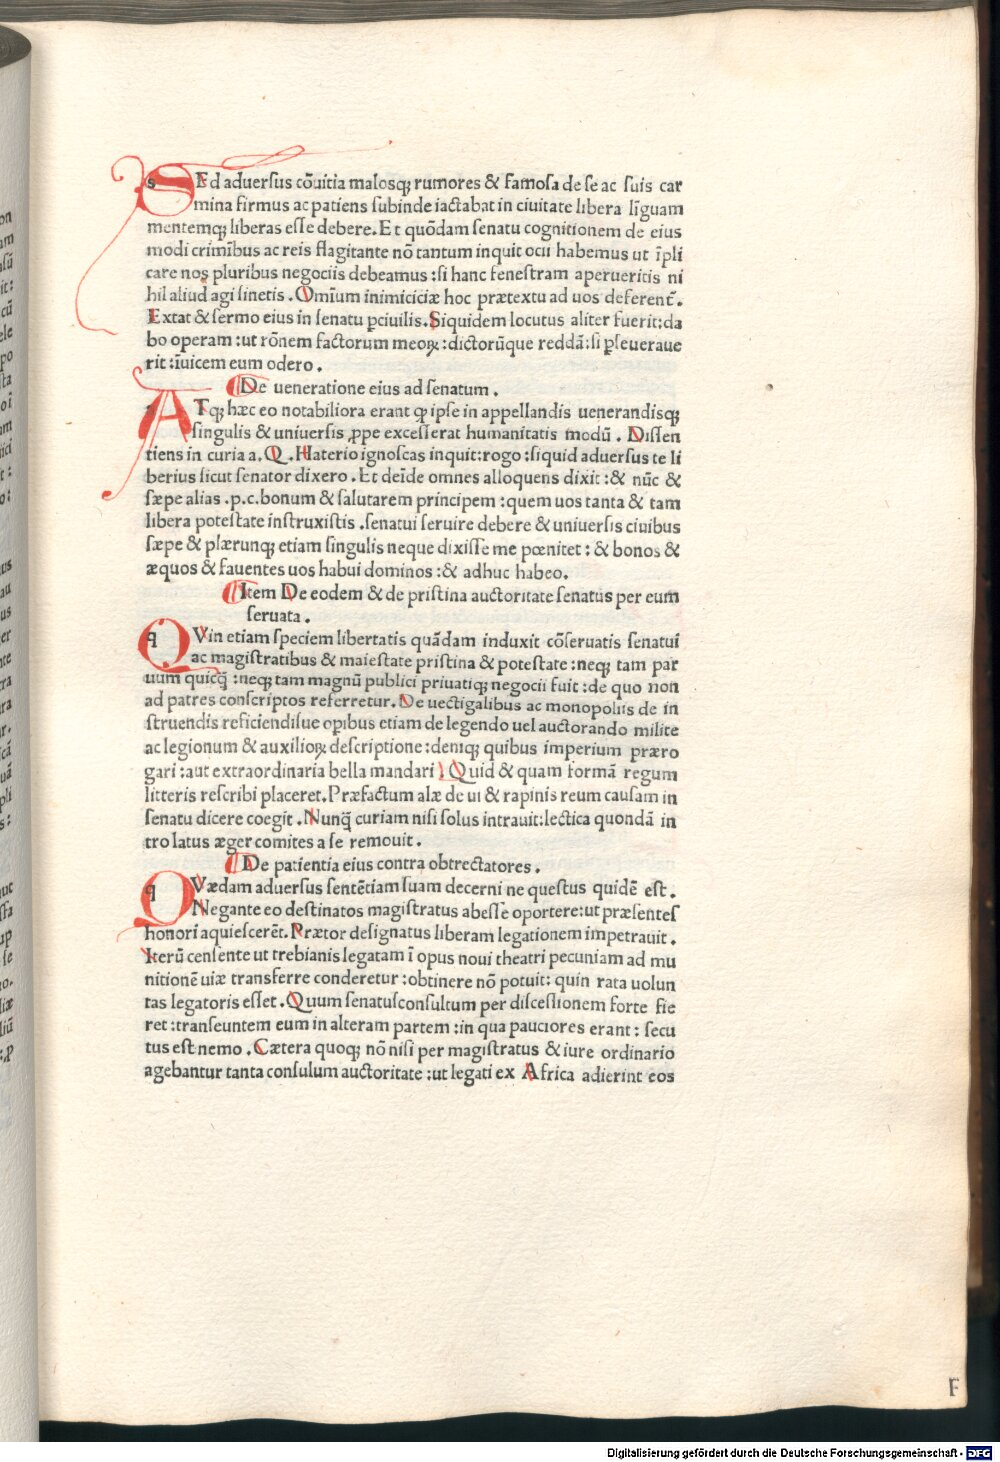 SEd aduersus cōuitia malosqꝫ rumores & famosa de se ac suis car
mina firmus ac patiens subinde iactabat in ciuitate libera līguam
mentemqꝫ liberas esse debere. Et quōdam senatu cognitionem de eius
modi crimībus ac reis flagitante nō tantum inquit ocii habemus ut īpli
care nos pluribus negociis debeamus : si hanc fenestram aperueritis ni
hil aliud agi sinetis . Omīum inimiciciæ hoc prætextu ad uos deferent̄.
Extat & sermo eius in senatu ꝑciuilis. Siquidem locutus aliter fuerit: da
bo operam : ut rōnem factorum meoꝝ : dictorūque reddā: si ꝑseueraue
rit : īuicem eum odero .
De ueneratione eius ad senatum .
ATqꝫ hæc eo notabiliora erant ꝙ ipse in appellandis uenerandisqꝫ
singulis & uniuersis ꝓpe excesserat humanitatis modū . Dissen
tiens in curia a. Q. Haterio ignoscas inquit: rogo : siquid aduersus te li
berius sicut senator dixero . Et deīde omnes alloquens dixit : & nūc &
sæpe alias . p.c. bonum & salutarem principem : quem uos tanta & tam
libera potestate instruxistis . senatui seruire debere & uniuersis ciuibus
sæpe & plærunqꝫ etiam singulis neque dixisse me pœnitet : & bonos &
æquos & fauentes uos habui dominos : & adhuc habeo.
Item De eodem & de pristina auctoritate senatus per eum
seruata .
QVin etiam speciem libertatis quādam induxit cōseruatis senatui
ac magistratibus & maiestate pristina & potestate : neqꝫ tam par
uum quicq̄ : neqꝫ tam magnū publici priuatiqꝫ negocii fuit : de quo non
ad patres conscriptos referretur. De uectigalibus ac monopoliis de in
struendis reficiendisue opibus etiam de legendo uel auctorando milite
ac legionum & auxilioꝝ descriptione : deniqꝫ quibus imperium præro
gari : aut extraordinaria bella mandari . Quid & quam formā regum
litteris rescribi placeret. Præfactum alæ de ui & rapinis reum causam in
senatu dicere coegit . Nunq̄ curiam nisi solus intrauit: lectica quondā in
tro latus æger comites a se remouit .
De patientia eius contra obtrectatores .
QVædam aduersus sentētiam suam decerni ne questus quidē est .
Negante eo destinatos magistratus abesse oportere: ut præsentes
honori aquiescerēt. Prætor designatus liberam legationem impetrauit .
Iterū censente ut trebianis legatam ī opus noui theatri pecuniam ad mu
nitionē uiæ transferre conderetur : obtinere nō potuit : quin rata uolun
tas legatoris esset . Quum senatusconsultum per discessionem forte fie
ret : transeuntem eum in alteram partem : in qua pauciores erant : secu
tus est nemo . Cætera quoqꝫ nō nisi per magistratus & iure ordinario
agebantur tanta consulum auctoritate : ut legati ex Africa adierint eos
F
Digitalisierung gefördert durch die Deutsche Forschungsgemeinschaft - DFG